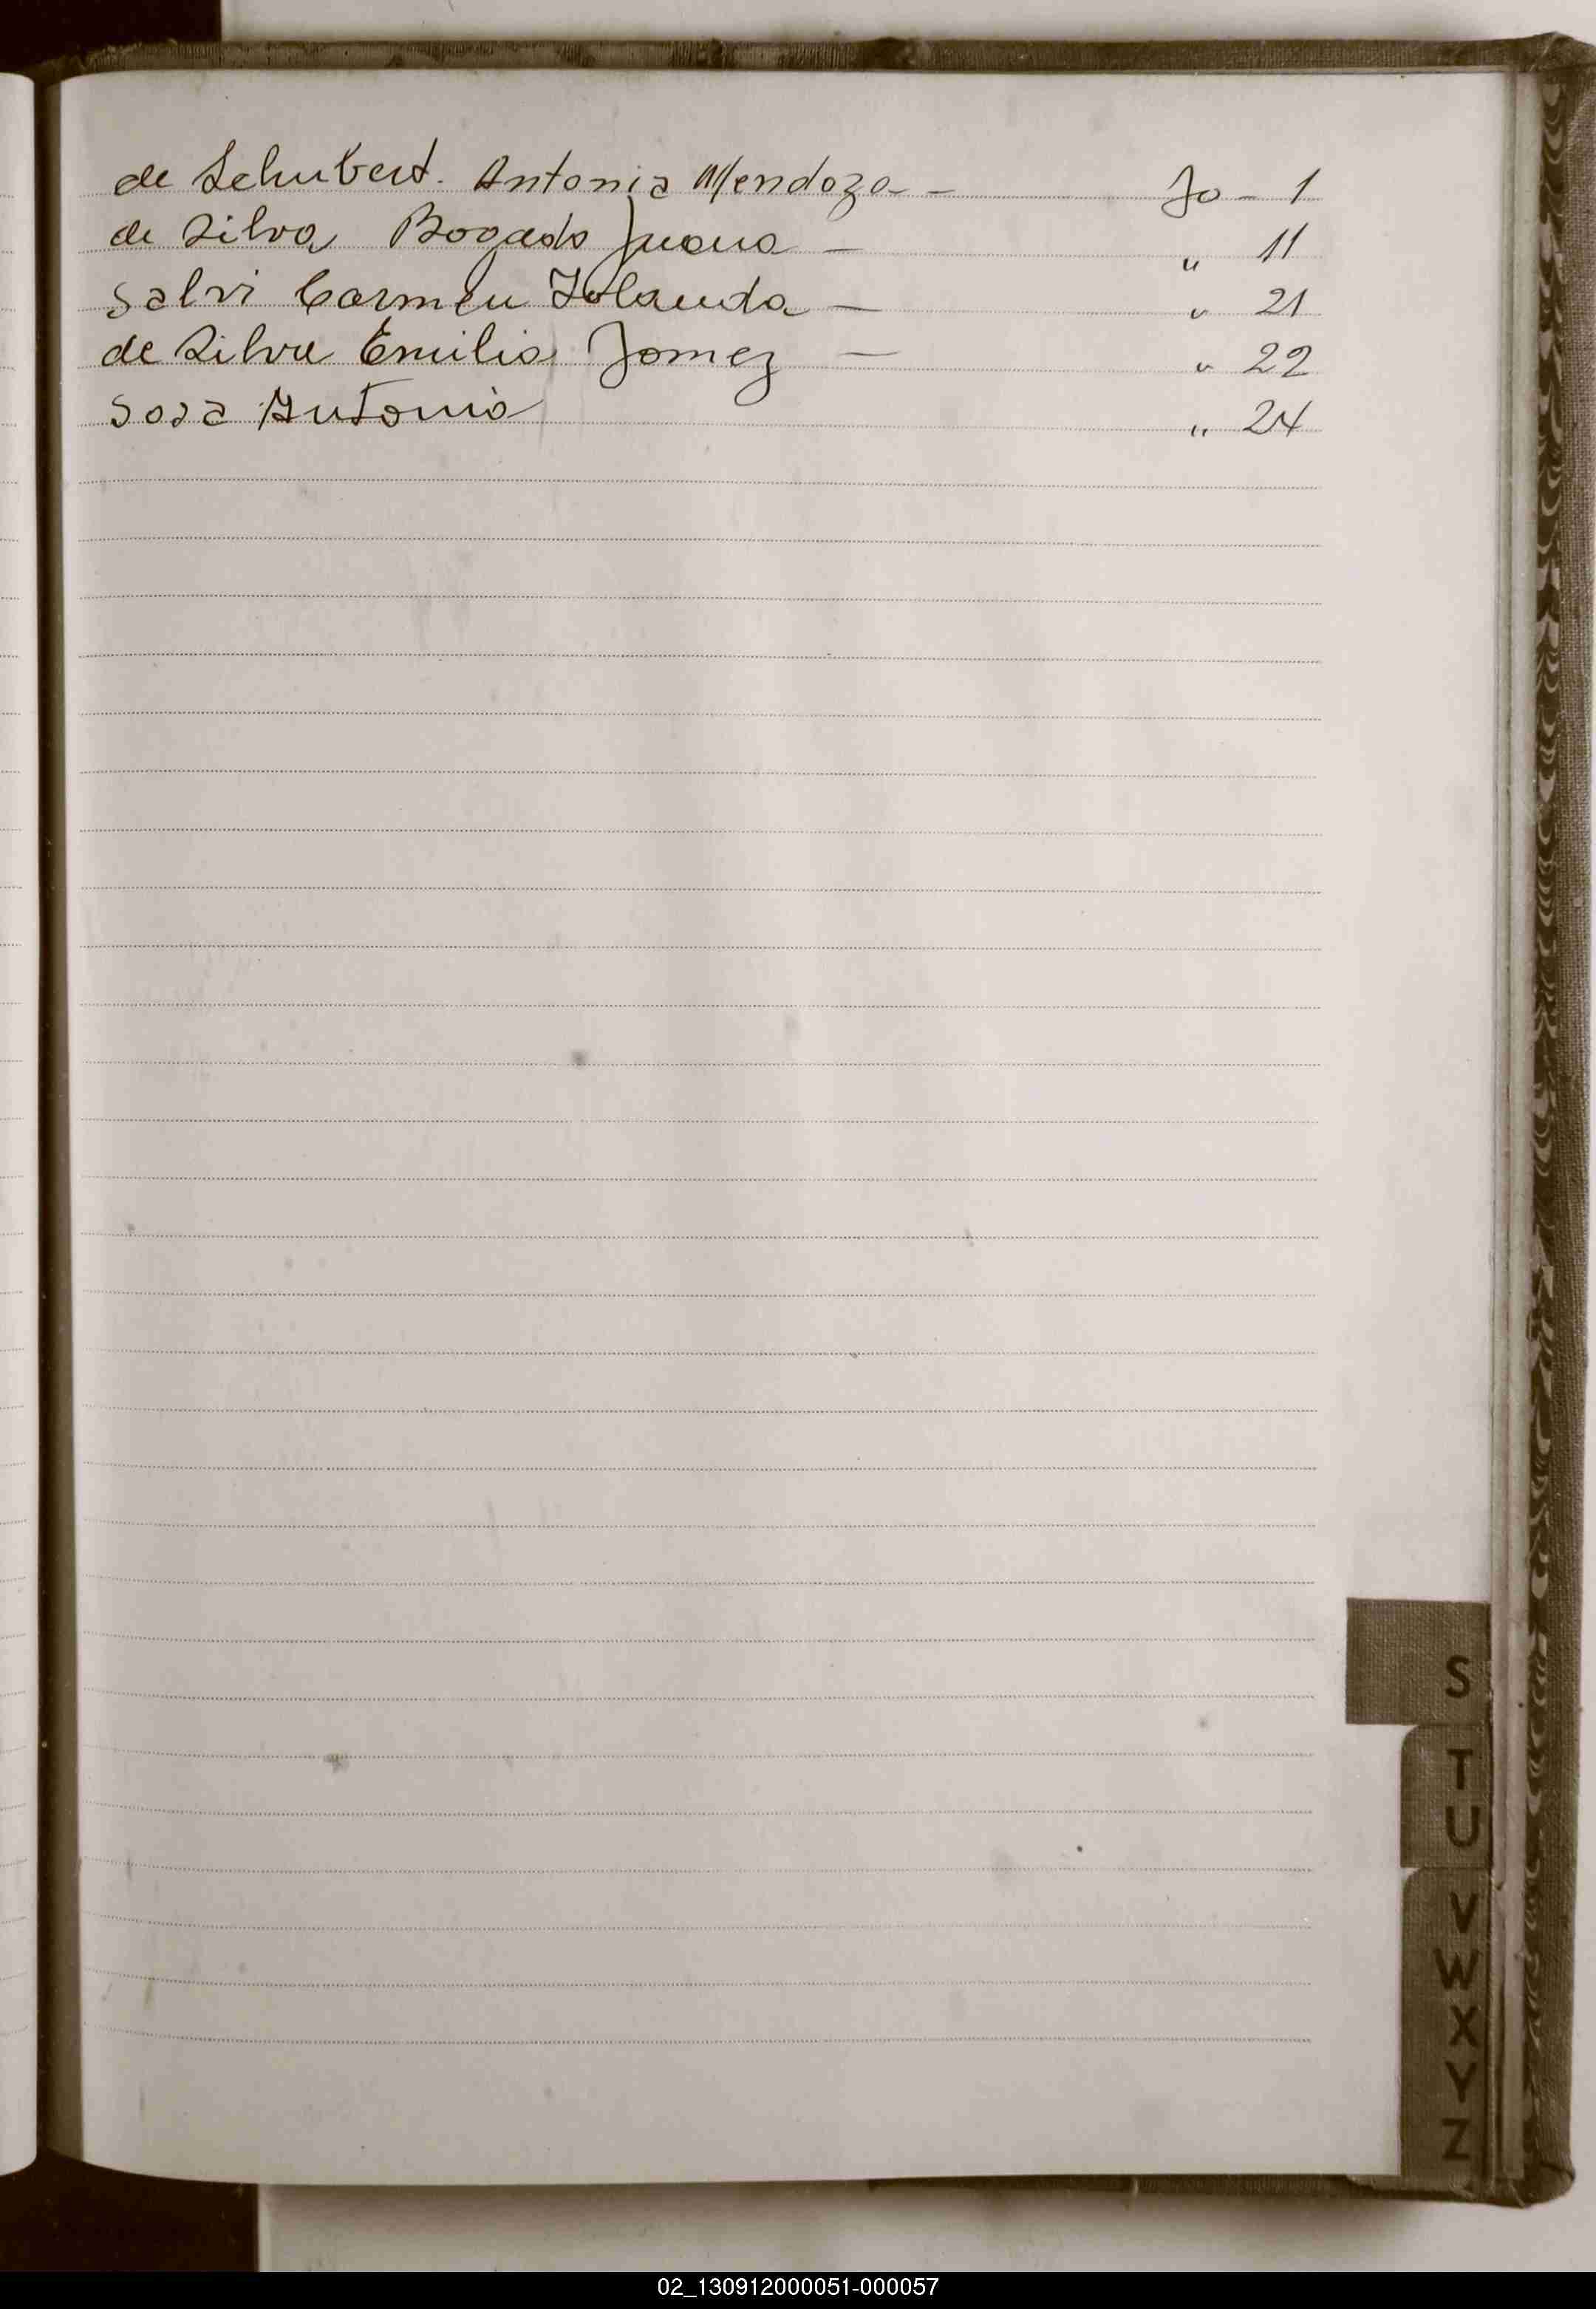 de Schubert. Antonia Mendoza - Fo - 1
de Silva Bogado Juana - " 11
Salvi Carmen Yolanda - " 21
de Silva Emilia Gomez - " 22
Sosa Antonia " 24
S
T
U
V
W
X
Y
Z
02_130912000051-000057